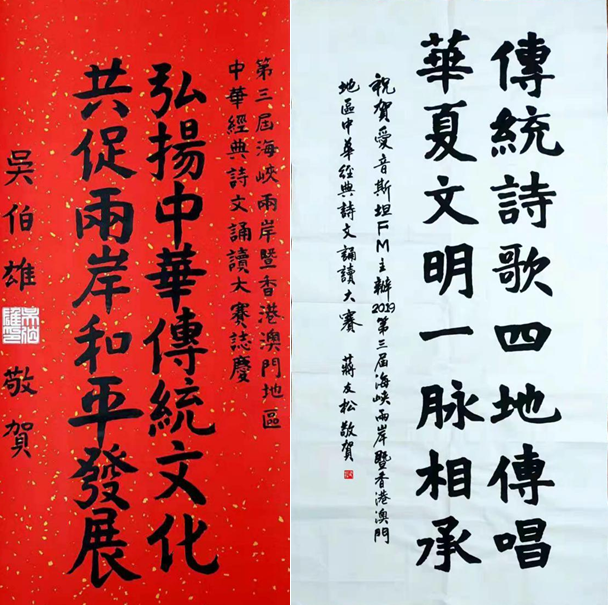 第三屆海峽兩岸暨香港澳門地區
中華經典詩文誦讀大賽誌慶
弘揚中華傳統文化
共促兩岸和平發展
吳伯雄
敬賀
傳統詩歌四地傳唱
華夏文明一脉相承
祝賀愛音斯坦FM主辦2019第三届海峽兩岸暨香港澳門
地區中華經典詩文誦讀大賽 蔣友松敬賀